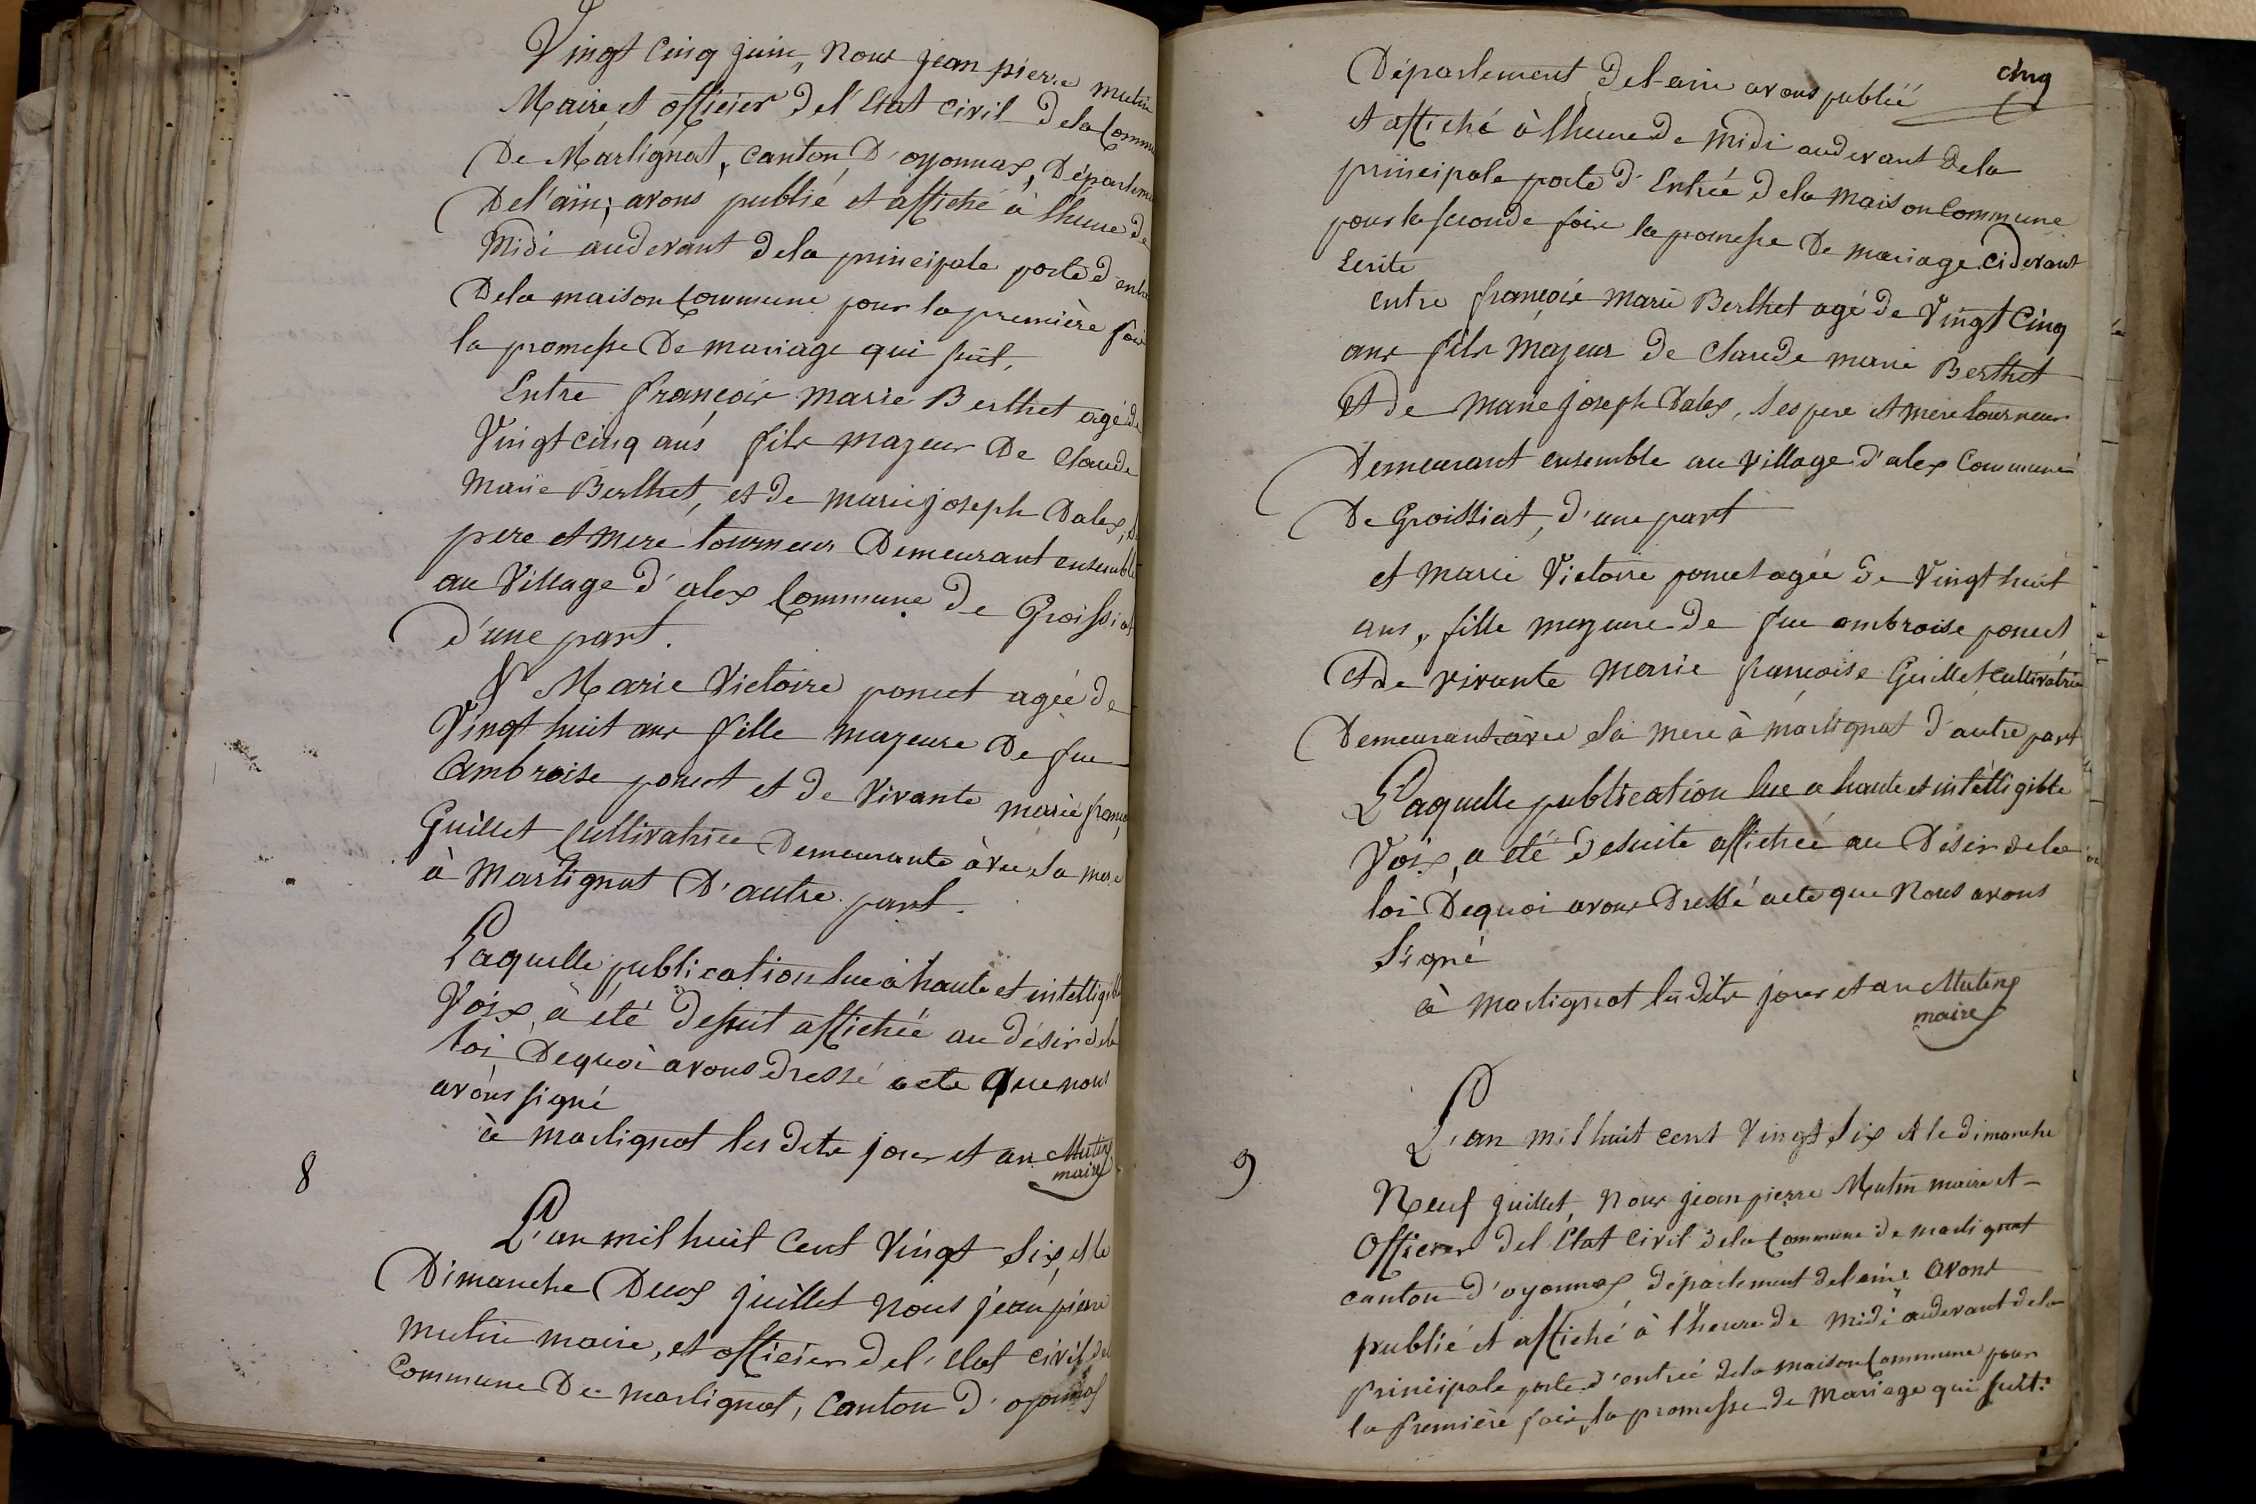 Vingt Cinq juin, Nous jean pierre mutin
Maire et officier del'Etat civil dela Commu
De Martignat, canton D'oyonnax, Départeme
Del'ain; avons publié et affiché à l'heure de
Midi audevant dela principale porte d'entré
Dela maison Commune pour la première fois
la promesse De mariage qui suit,
Entre françois Marie Berthet agé de
Vingt cinq ans fils majeur De Claude
Marie Berthet, et de marie joseph Dalex,
pere et mere tourneur Demeurant ensemble
au Village d'alex Commune de Groissiat
d'une part.
Et Marie Victoire poncet agée de
Vingt huit ans fille majeure De feu
Ambroise poncet et de Vivante marie franç
Guillet Cultivatrice Demeurante avec sa mere
à Martignat D'autre part.
Laquelle publication lue à haute et intelligible
Voix, à été desuit affichée au désir dela
loi Dequoi avons dressé acte que nous
avons signé
à martignat les dits jour et an Mutin
maire
8
L'an mil huit Cent Vingt Six, et le
Dimanche Deux juillet Nous jean pierre
mutin maire, et officier del'etat civil del
Commune De martignat, Canton d'oyonnax
cinq
Département del-ain avons publié
et affiché à lheure de midi audevant dela
principale porte d'Entrée dela maison Commune
pour la seconde fois la promesse De mariage ci devant
Ecrite
entre françois marie Berthet agé de Vingt Cinq
ans fils majeur de Claude marie Berthet
et de marie joseph Dalex, ses pere et mere tourneur
Demeurant ensemble au village d'alex Commune
De Groissiat, d'une part
et marie Victoire poncet agée de Vingt huit
ans, fille majeure de feu ambroise poncet
et de vivante marie françoise Guillet cultivatrice
Demeurant avec sa mere à martignat d'autre part
Laquelle publication lue a haute et intelligible
Voix, a été desuite affichée au Désir dela
loi Dequoi avons Dressé acte que Nous avons
Signé
à martignat les dits jour et an Mutin
maire
9
L'an mil huit cent Vingt Six et le dimanche
Neuf juillet, Nous jean pierre Mutin maire et
Officier del'Etat civil dela Commune de martignat
canton d'oyonnax, département del'ain, avons
publié et affiché à l'heure de midi audevant dela
principale porte d'entrée dela maison Commune pour
la première fois, la promesse de mariage qui suit: